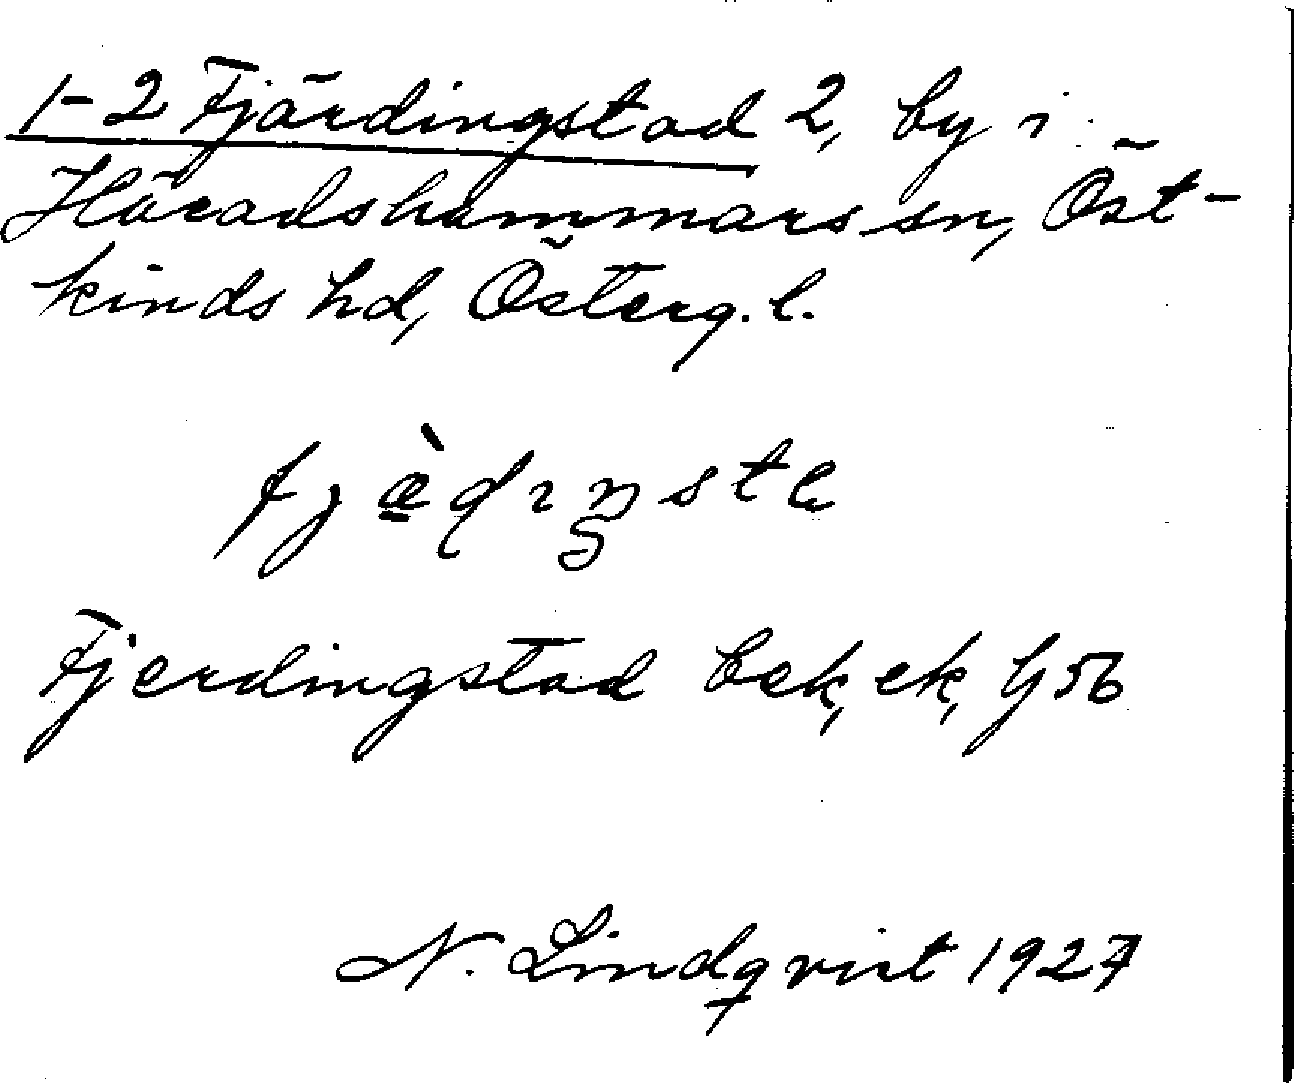 1-2 Fjärdingstad 2, by i
Häradshammars sn, Öst-
kinds hd, Österg. l.
Fjerdingstad bek, ek, G 56
N. Lindqvist 1927